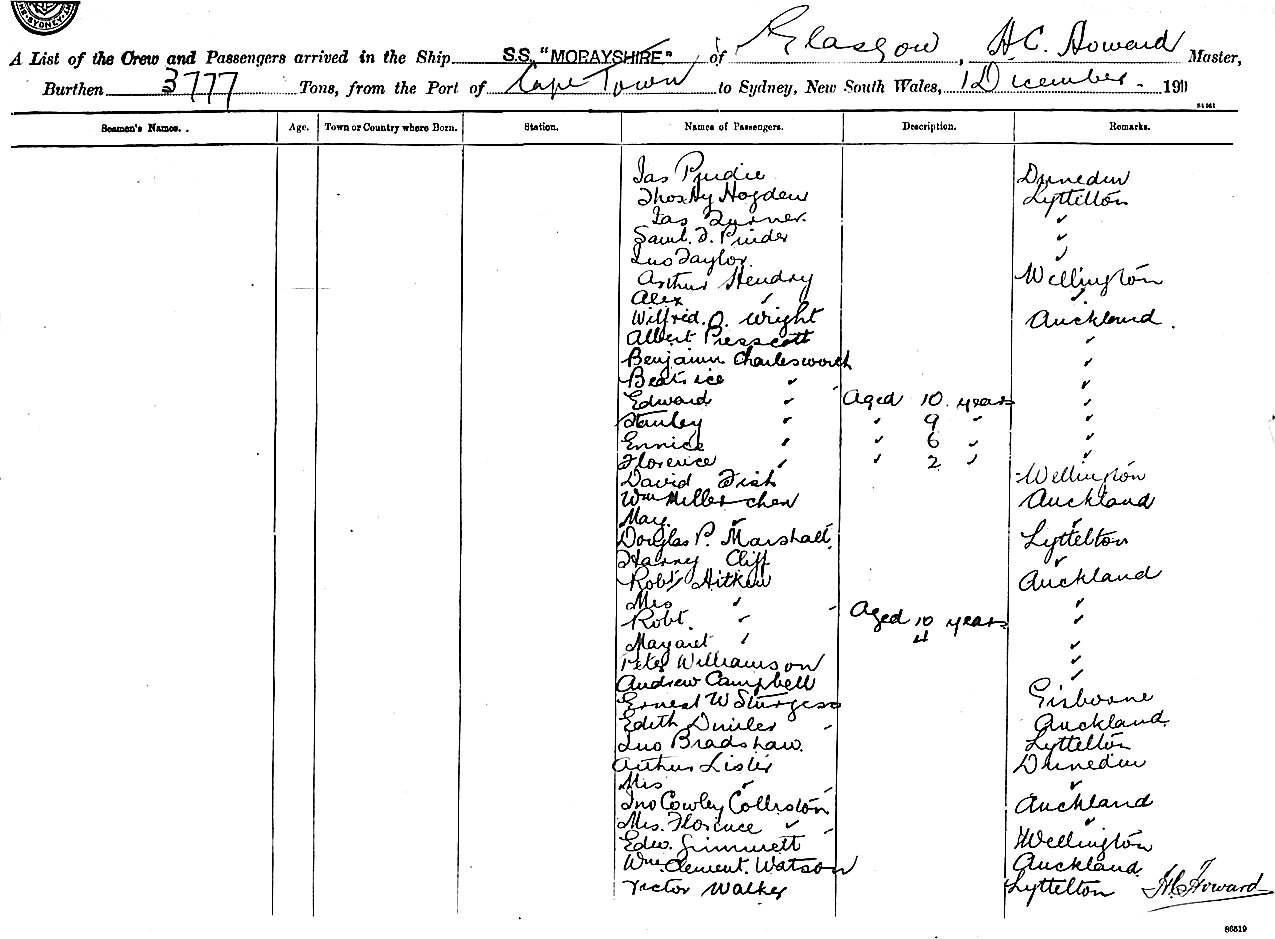 SYDNEY
A List of the Crew and Passengers arrived in the Ship S.S. "MORAYSHIRE" of Glasgow, H.C. Howard Master,
Burthen 3777 Tons, from the Port of Cape Town to Sydney, New South Wales, 1 December 1911
84561
Seamen's Names. Age. Town or Country where Born. Station. Names of Passengers. Description. Remarks.
Jas Purdie Dunedin
Thos Hy Hogden Lyttelton
Jas Turner "
Saml. F. Pinder "
Jno Taylor "
Arthur Hendry Wellington
Alex " "
Wilfrid. O. Wright Auckland.
Albert Presscott "
Benjamin Charlesworth "
Beatrice " "
Edward " Aged 10 years "
Stanley " " 9 " "
Eunice " " 6 " "
Florence " " 2 " "
David Fish Wellington
Wm Auckland
May " "
Douglas P. Marshall Lyttelton
Harry Cliff "
Robt Aitken Auckland
Mrs " "
Robt. " Aged 10 years "
Margaret " 4 "
Peter Williamson "
Andrew Campbell "
Ernest W Sturgess Gisborne
Edith Auckland
Jno Bradshaw. Lyttelton
Arthur Lister Dunedin
Mrs " "
Jno Cowley Colliston Auckland
Mrs. Florence " "
Edw. Grimmett Wellington
Wm Clement. Watson Auckland
Victor Walker Lyttelton H.C. Howard
86519